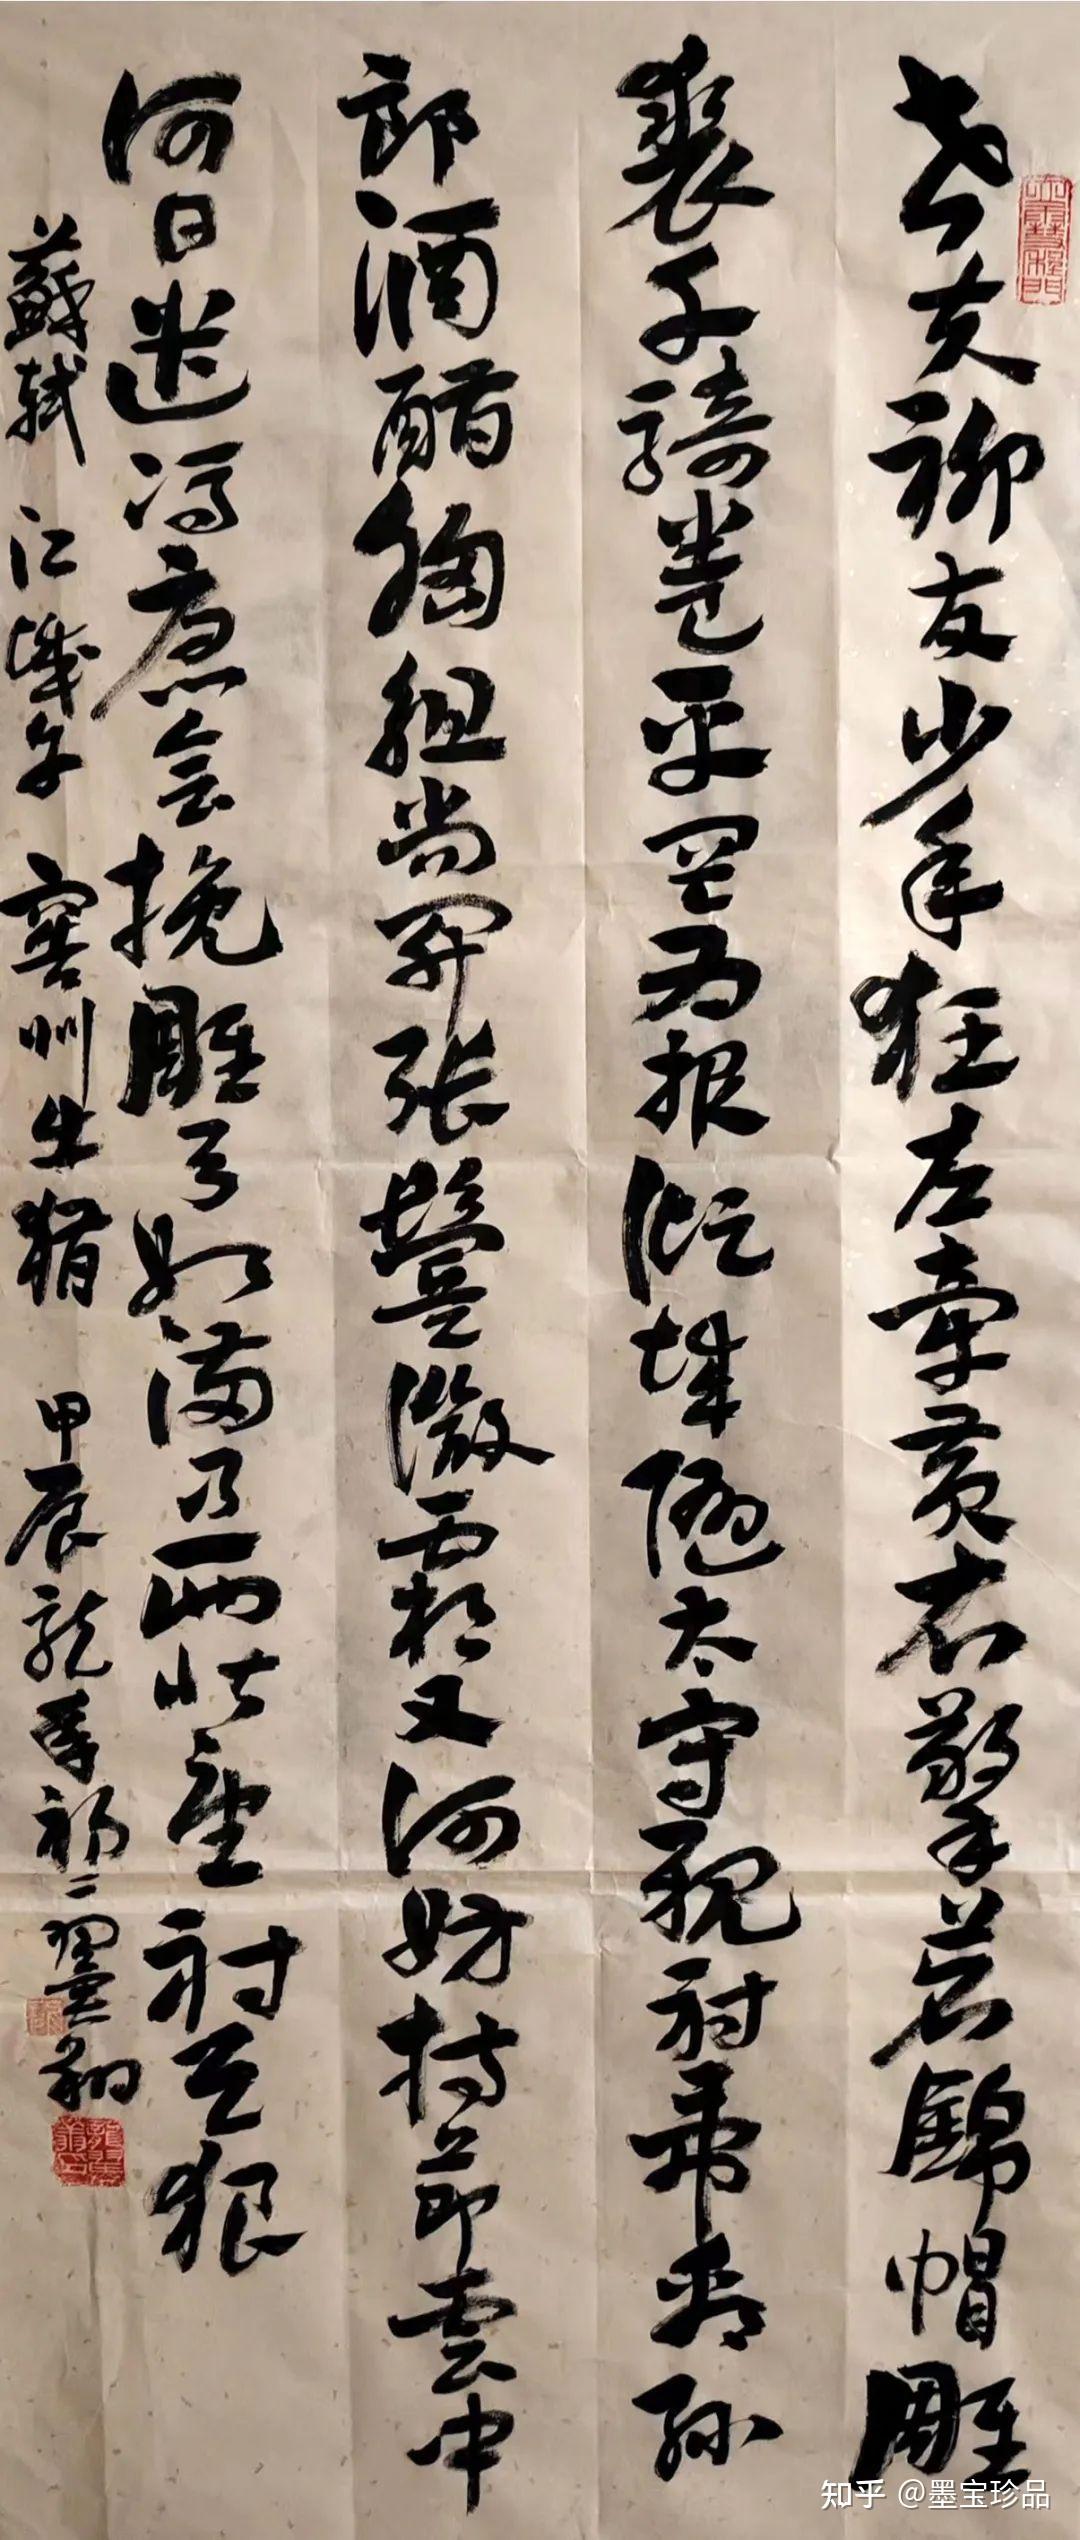 老夫聊發少年狂左牽黄右擎苍錦帽雕
裘千騎卷平冈为报倾城随太守親射虎看孙
郎酒酣胸胆尚开张鬓微霜又何妨持节雲中
何日遣冯唐会挽雕弓如满月西北望射天狼
蘇軾 江城子 密州出猎 甲辰龙年初二
知乎 @墨宝珍品